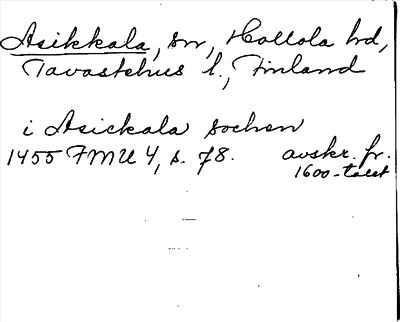 Asikkala, sn, Hollola hd,
Tavastehus l., Finland
i Asickala sochen
1455 FMU 4, s. 78. avskr. fr.
1600-talet